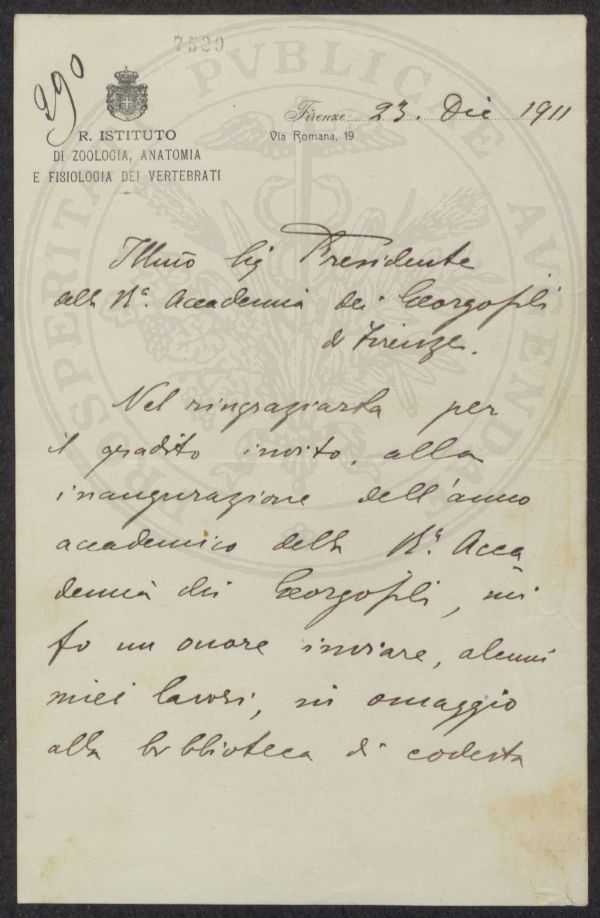 7529
290
R. ISTITUTO
DI ZOOLOGIA, ANATOMIA
E FISIOLOGIA DEI VERTEBRATI
Firenze 23. Dic 1911
Via Romana, 19
Illmo Sig Presidente
della Rª. Accademia dei Georgofili
di Firenze.
Nel ringraziarla per
il gradito invito, alla
inaugurazione dell'anno
accademico della Rª. Acca
demia dei Georgofili, mi
fo un onore inviare, alcuni
miei lavori, in omaggio
alla biblioteca di codesta
PROSPERITATI PVBLICAE AVGENDAE